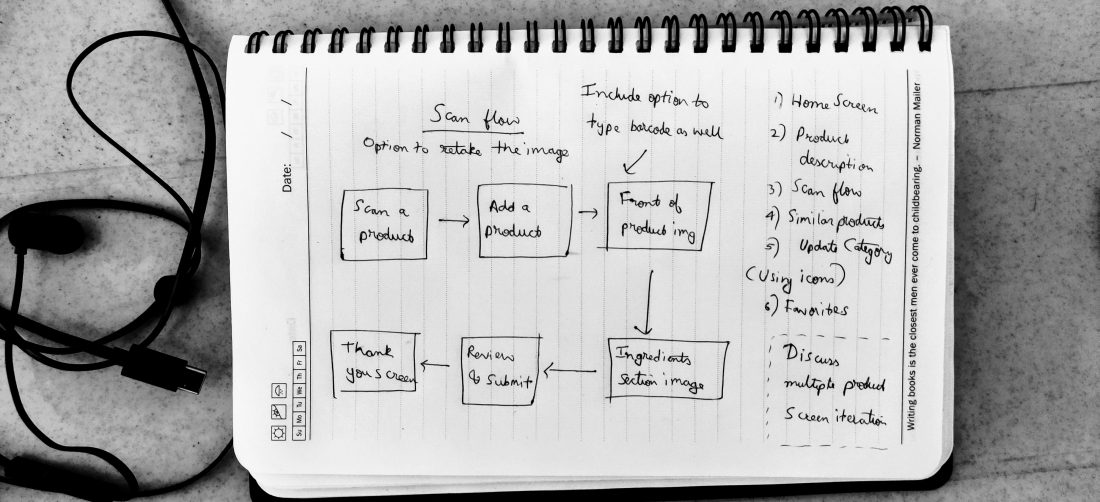 Scan flow
Option to retake the image
Include option to
type barcode as well
Scan a
product
Add a
product
Front of
product img
Ingredients
section image
Review
& Submit
Thank
you screen
1) Home Screen
2) Product
description
3) Scan flow
4) Similar products
5) Update Category
(Using icons)
6) Favorites
Discuss
multiple product
Screen iteration
Date: / /
Su Mo Tu We Th Fr Sa
Writing books is the closest men ever come to childbearing. – Norman Mailer